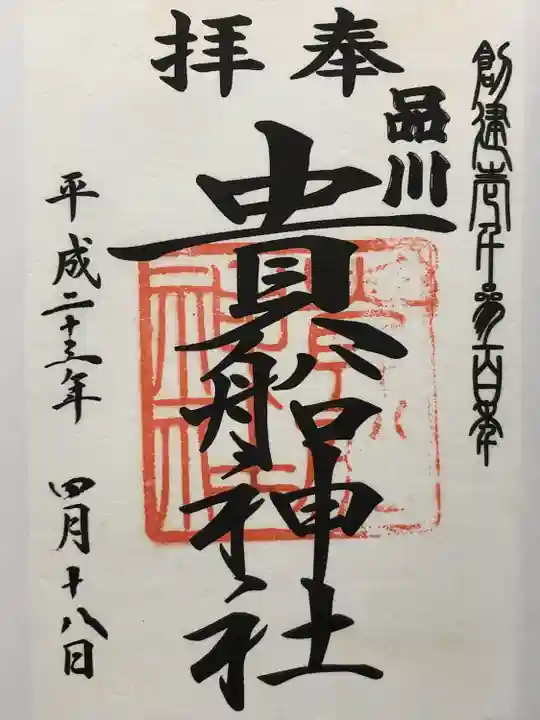 創建壱千参百年
奉拝
品川
貴船神社
平成二十三年 四月十八日